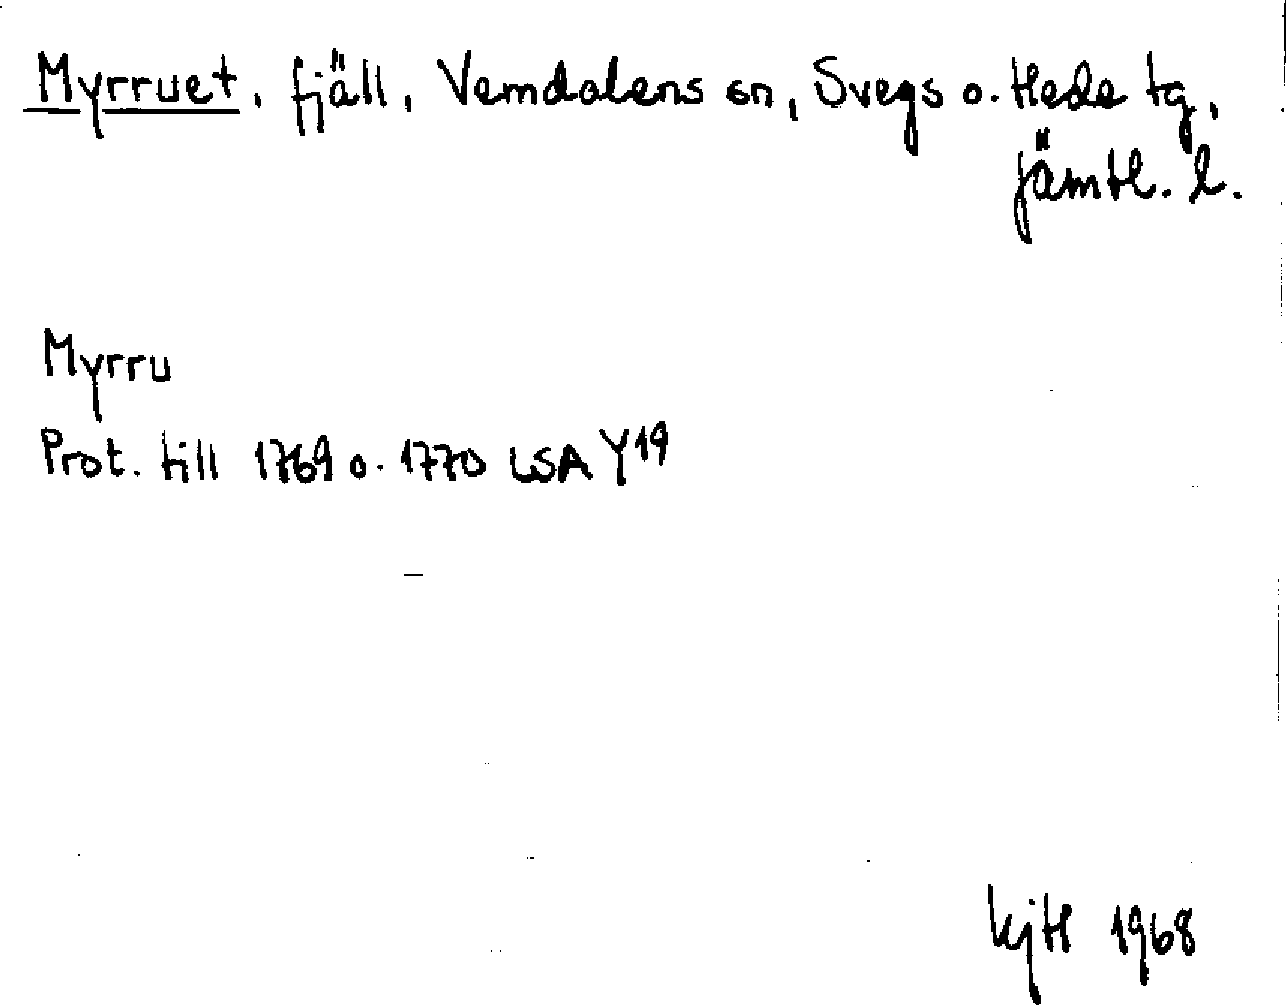 Myrruet, fjäll, Vemdalens sn, Svegs o. Hede tg,
Jämtl. l.
Myrru
Prot. till 1769 o. 1770 LSA Y19
KjH 1968